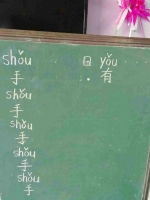 shǒu
手
shǒu
手
shǒu
手
shǒu
手
shǒu
手
yǒu
有